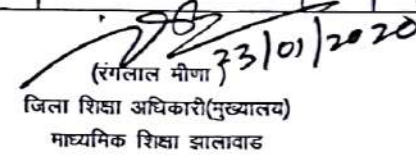 23/01/2020
(रंगलाल मीणा)
जिला शिक्षा अधिकारी(मुख्यालय)
माध्यमिक शिक्षा झालावाड